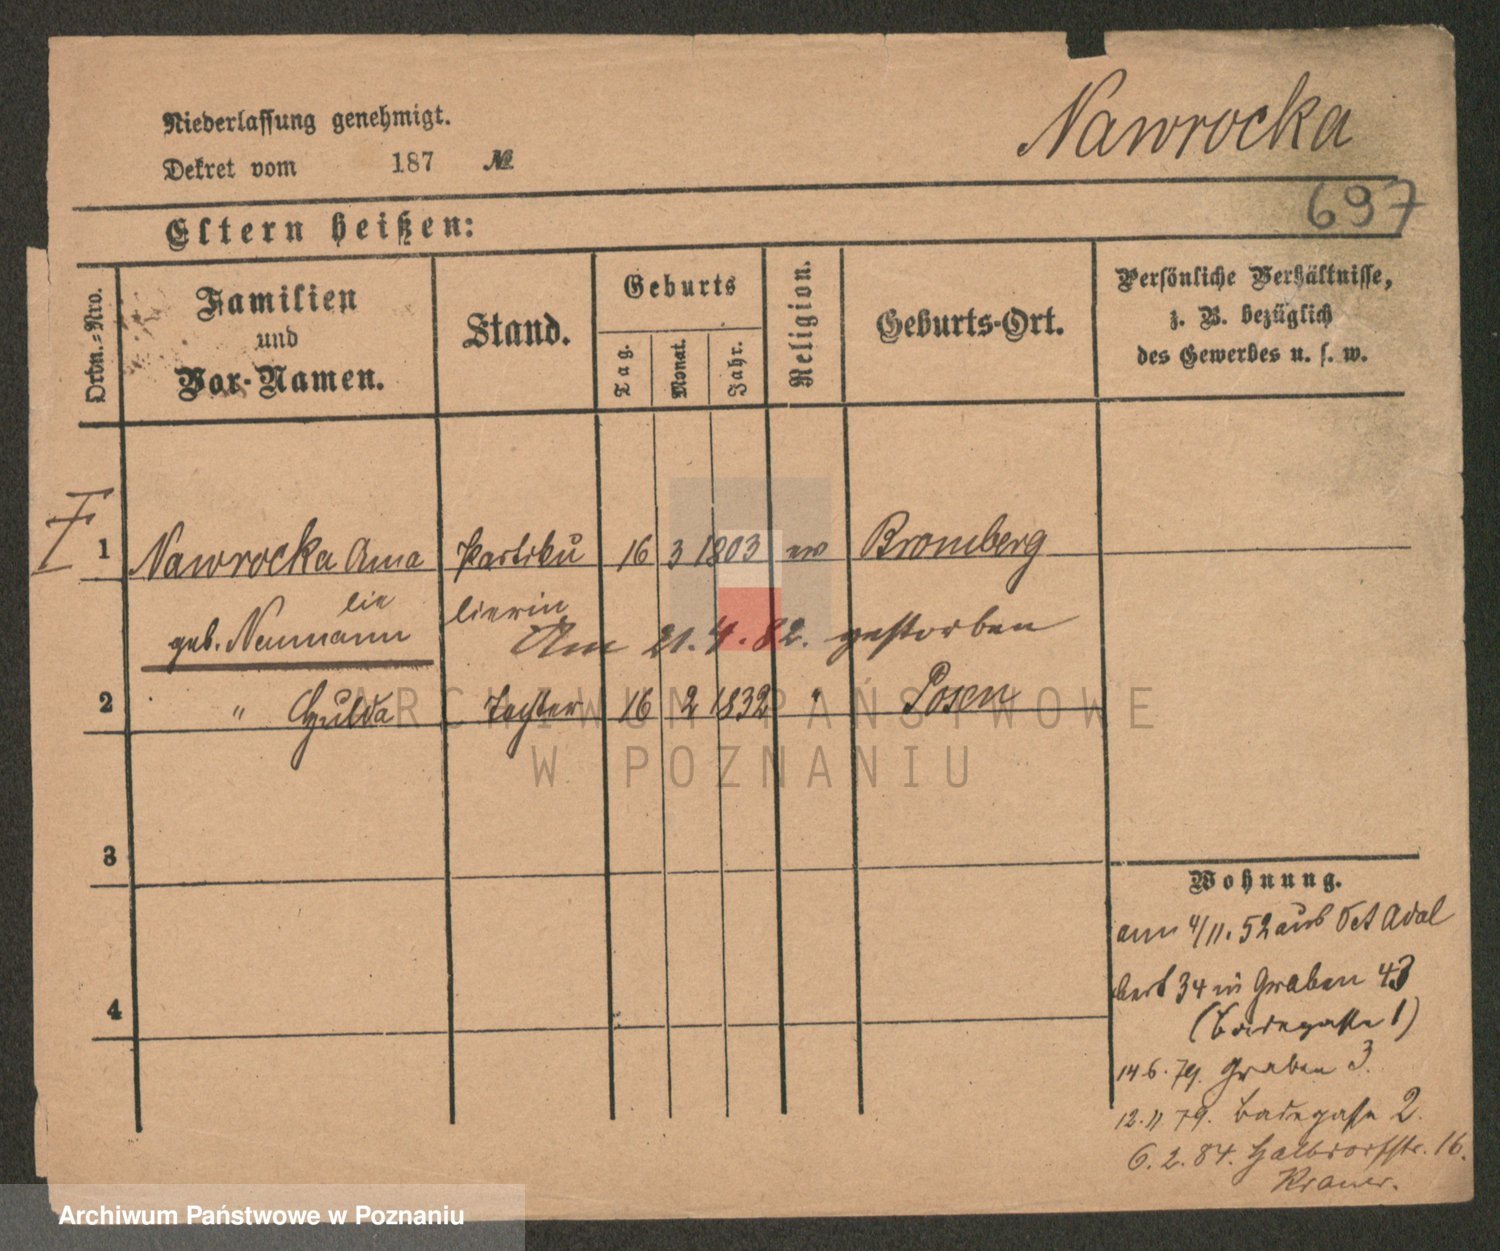 Niederlassung genehmigt.
Dekret vom 187 №
Nawrocka
697
Eltern heißen:
Ordn.-Nro.
Familien
und
Vor-Namen.
Stand.
Geburts
Tag.
Monat.
Jahr.
Religion.
Geburts-Ort.
Persönliche Verhältnisse,
z. B. bezüglich
des Gewerbes u. s. w.
1 Nawrocka Ama Partiku 16 3 1803 ev Bromberg
lie lierin
geb. Neumann
Am 21.4.82. gestorben
2 " Hulda Tochter 16 2 1832 " Posen
3
4
Wohnung.
am 4/11. 52 aus Oct Adal
bert 34 in Graben 43
(Badegasse 1)
14 6. 79. Graben 3.
12. 11 79. Badegasse 2.
6. 2. 84. Halbdorfstr. 16.
ARCHIWUM PAŃSTWOWE
W POZNANIU
Archiwum Państwowe w Poznaniu